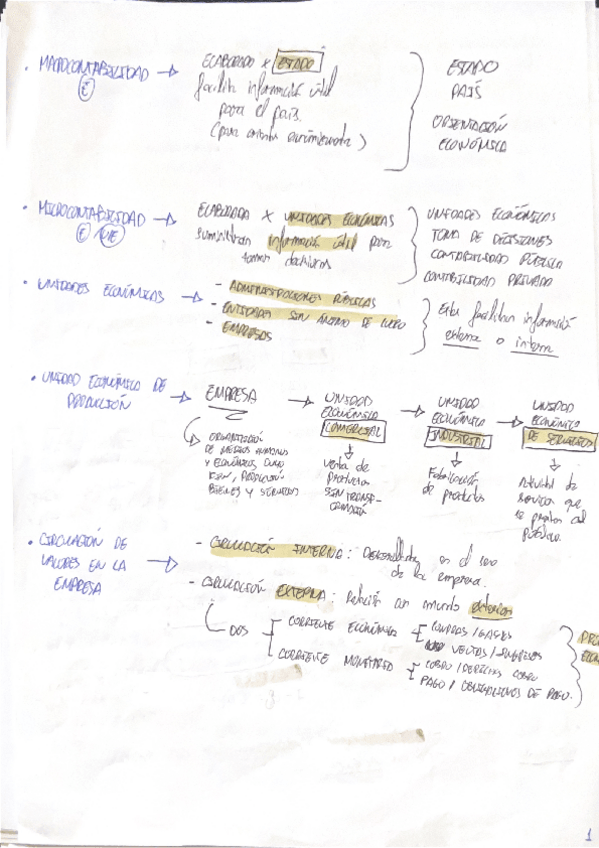 · MACROCONTABILIDAD → ELABORADO x ESTADO
E
facilita información útil
para el país.
(para orientar económicamente)
ESTADO
PAÍS
ORIENTACIÓN
ECONÓMICA
· MICROCONTABILIDAD → ELABORADA x UNIDADES ECONÓMICAS
E / UE
suministran información útil para
tomar decisiones
UNIDADES ECONÓMICAS
TOMA DE DECISIONES
CONTABILIDAD PÚBLICA
CONTABILIDAD PRIVADA
· UNIDADES ECONÓMICAS →
- ADMINISTRACIONES PÚBLICAS
- ENTIDADES SIN ÁNIMO DE LUCRO
- EMPRESAS
facilitan información
externa o interna
· UNIDAD ECONÓMICA DE
PRODUCCIÓN →
EMPRESA
ORGANIZACIÓN
DE MEDIOS HUMANOS
Y ECONÓMICOS CUYO
PRODUCCIÓN
BIENES Y SERVICIOS
→ UNIDAD
ECONÓMICA
COMERCIAL
venta de
productos
SIN TRANSF-
ORMACIÓN
→ UNIDAD
ECONÓMICA
INDUSTRIAL
Fabricación
de productos
→ UNIDAD
ECONÓMICA
DE SERVICIOS
Actividad de
servicios que
se prestan al
público.
· CIRCULACIÓN DE
VALORES EN LA
EMPRESA →
- CIRCULACIÓN INTERNA: Desarrollada en el seno
de la empresa.
- CIRCULACIÓN EXTERNA: Relación con mundo exterior
DOS
CORRIENTE ECONÓMICA
COMPRAS/GASTOS
VENTAS/INGRESOS
CORRIENTE MONETARIA
COBRO/DERECHOS COBRO
PAGO/OBLIGACIONES DE PAGO.
1